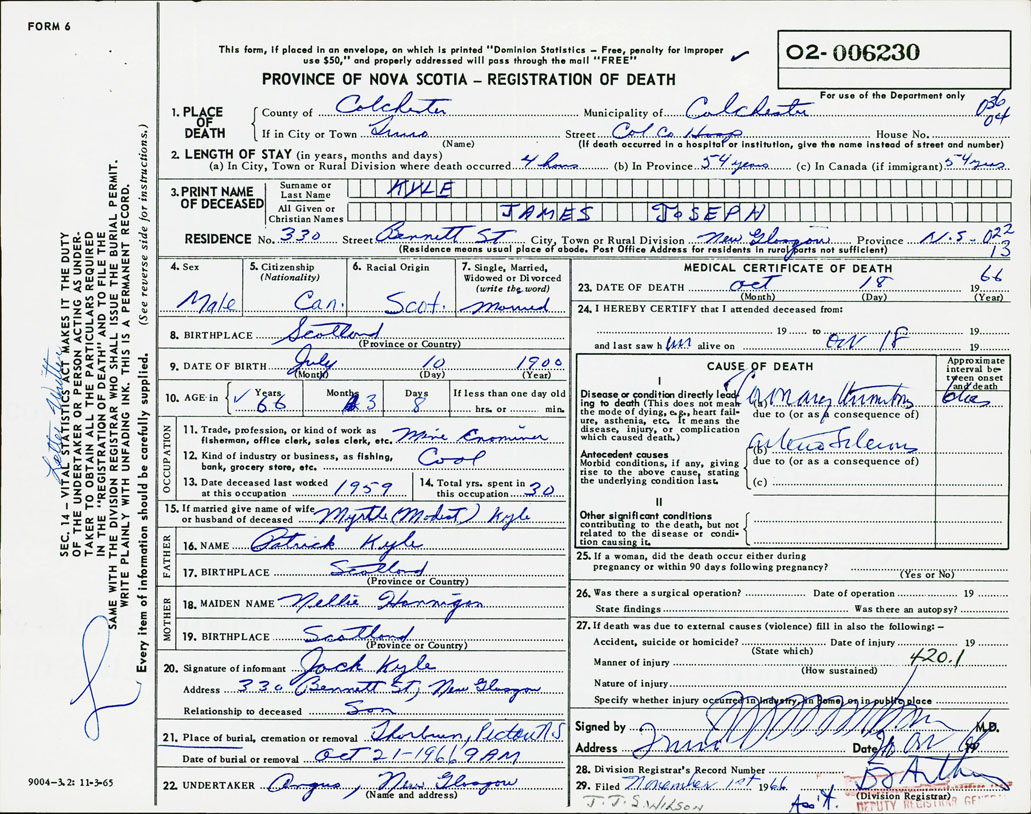 FORM 6
This form, if placed in an envelope, on which is printed "Dominion Statistics – Free, penalty for improper
use $50," and properly addressed will pass through the mail "FREE"
02-006230
PROVINCE OF NOVA SCOTIA – REGISTRATION OF DEATH
For use of the Department only
036
04
1. PLACE OF DEATH
County of Colchester Municipality of Colchester
If in City or Town Truro Street Col Co Hosp House No.
(Name) (If death occurred in a hospital or institution, give the name instead of street and number)
2. LENGTH OF STAY (in years, months and days)
(a) In City, Town or Rural Division where death occurred 4 hours (b) In Province 54 years (c) In Canada (if immigrant) 54 yrs
3. PRINT NAME OF DECEASED
Surname or Last Name KYLE
All Given or Christian Names JAMES JOSEPH
RESIDENCE No. 330 Street Bennett St City, Town or Rural Division New Glasgow Province N.S - 022
13
(Residence means usual place of abode. Post Office Address for residents in rural parts not sufficient)
4. Sex
Male
5. Citizenship
(Nationality)
Can.
6. Racial Origin
Scot.
7. Single, Married,
Widowed or Divorced
(write the word)
Married
8. BIRTHPLACE Scotland
(Province or Country)
9. DATE OF BIRTH July 10 1900
(Month) (Day) (Year)
10. AGE in Years 66 Months 3 Days 8 If less than one day old
hrs. or min.
OCCUPATION
11. Trade, profession, or kind of work as
fisherman, office clerk, sales clerk, etc. Mine Examiner
12. Kind of industry or business, as fishing,
bank, grocery store, etc. Coal
13. Date deceased last worked
at this occupation 1959
14. Total yrs. spent in
this occupation 30
15. If married give name of wife
or husband of deceased Myrtle (Modest) Kyle
FATHER
16. NAME Patrick Kyle
17. BIRTHPLACE Scotland
(Province or Country)
MOTHER
18. MAIDEN NAME Nellie Hannigan
19. BIRTHPLACE Scotland
(Province or Country)
20. Signature of informant Jack Kyle
Address 330 Bennett St, New Glasgow
Relationship to deceased Son
21. Place of burial, cremation or removal Thorburn, Pictou N.S
Date of burial or removal Oct 21-1966 9AM
22. UNDERTAKER Angus, New Glasgow
(Name and address)
MEDICAL CERTIFICATE OF DEATH
23. DATE OF DEATH Oct 18 1966
(Month) (Day) (Year)
24. I HEREBY CERTIFY that I attended deceased from:
19 to 19
and last saw him alive on Oct 18 19
CAUSE OF DEATH
Approximate
interval be-
tween onset
and death
I
Disease or condition directly lead-
ing to death (This does not mean
the mode of dying, e.g., heart fail-
ure, asthenia, etc. It means the
disease, injury, or complication
which caused death.)
(a) Coronary thrombosis
due to (or as a consequence of)
Antecedent causes
Morbid conditions, if any, giving
rise to the above cause, stating
the underlying condition last.
(b)
due to (or as a consequence of)
(c)
II
Other significant conditions
contributing to the death, but not
related to the disease or condi-
tion causing it.
25. If a woman, did the death occur either during
pregnancy or within 90 days following pregnancy?
(Yes or No)
26. Was there a surgical operation? Date of operation 19
State findings Was there an autopsy?
27. If death was due to external causes (violence) fill in also the following: –
Accident, suicide or homicide? Date of injury 19
(State which)
Manner of injury 420.1
(How sustained)
Nature of injury
Specify whether injury occurred in industry, in home, or in public place
Signed by M.D.
Address Truro Date 19
28. Division Registrar's Record Number
29. Filed November 1st 1966
(Division Registrar)
J.J.S. WILSON
Ass't.
DEPUTY REGISTRAR GENERAL
SEC. 14 – VITAL STATISTICS ACT MAKES IT THE DUTY
OF THE UNDERTAKER OR PERSON ACTING AS UNDER-
TAKER TO OBTAIN ALL THE PARTICULARS REQUIRED
IN THE "REGISTRATION OF DEATH" AND TO FILE THE
SAME WITH THE DIVISION REGISTRAR WHO SHALL ISSUE THE BURIAL PERMIT.
WRITE PLAINLY WITH UNFADING INK. THIS IS A PERMANENT RECORD.
Every item of information should be carefully supplied. (See reverse side for instructions.)
9004–3.2: 11-3-65